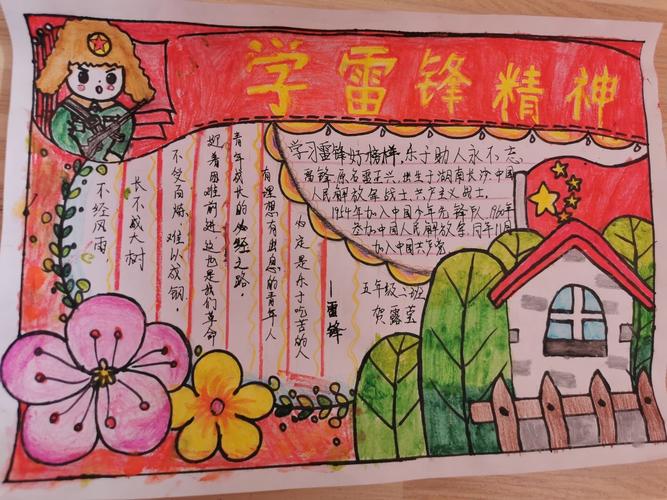 学雷锋精神
不经风雨
长不成大树
不受百炼,难以成钢.
迎着困难前进,这也是我们革命
青年成长的必经之路.
有理想有出息的青年人
必定是乐于吃苦的人
—雷锋
学习雷锋好榜样,乐于助人永不忘
雷锋原名雷正兴出生于湖南长沙中国
人民解放军战士,共产主义战士.
1964年加入中国少年先锋队,1960年
参加中国人民解放军,同年11月
加入中国共产党
五年级二班
贺露莹